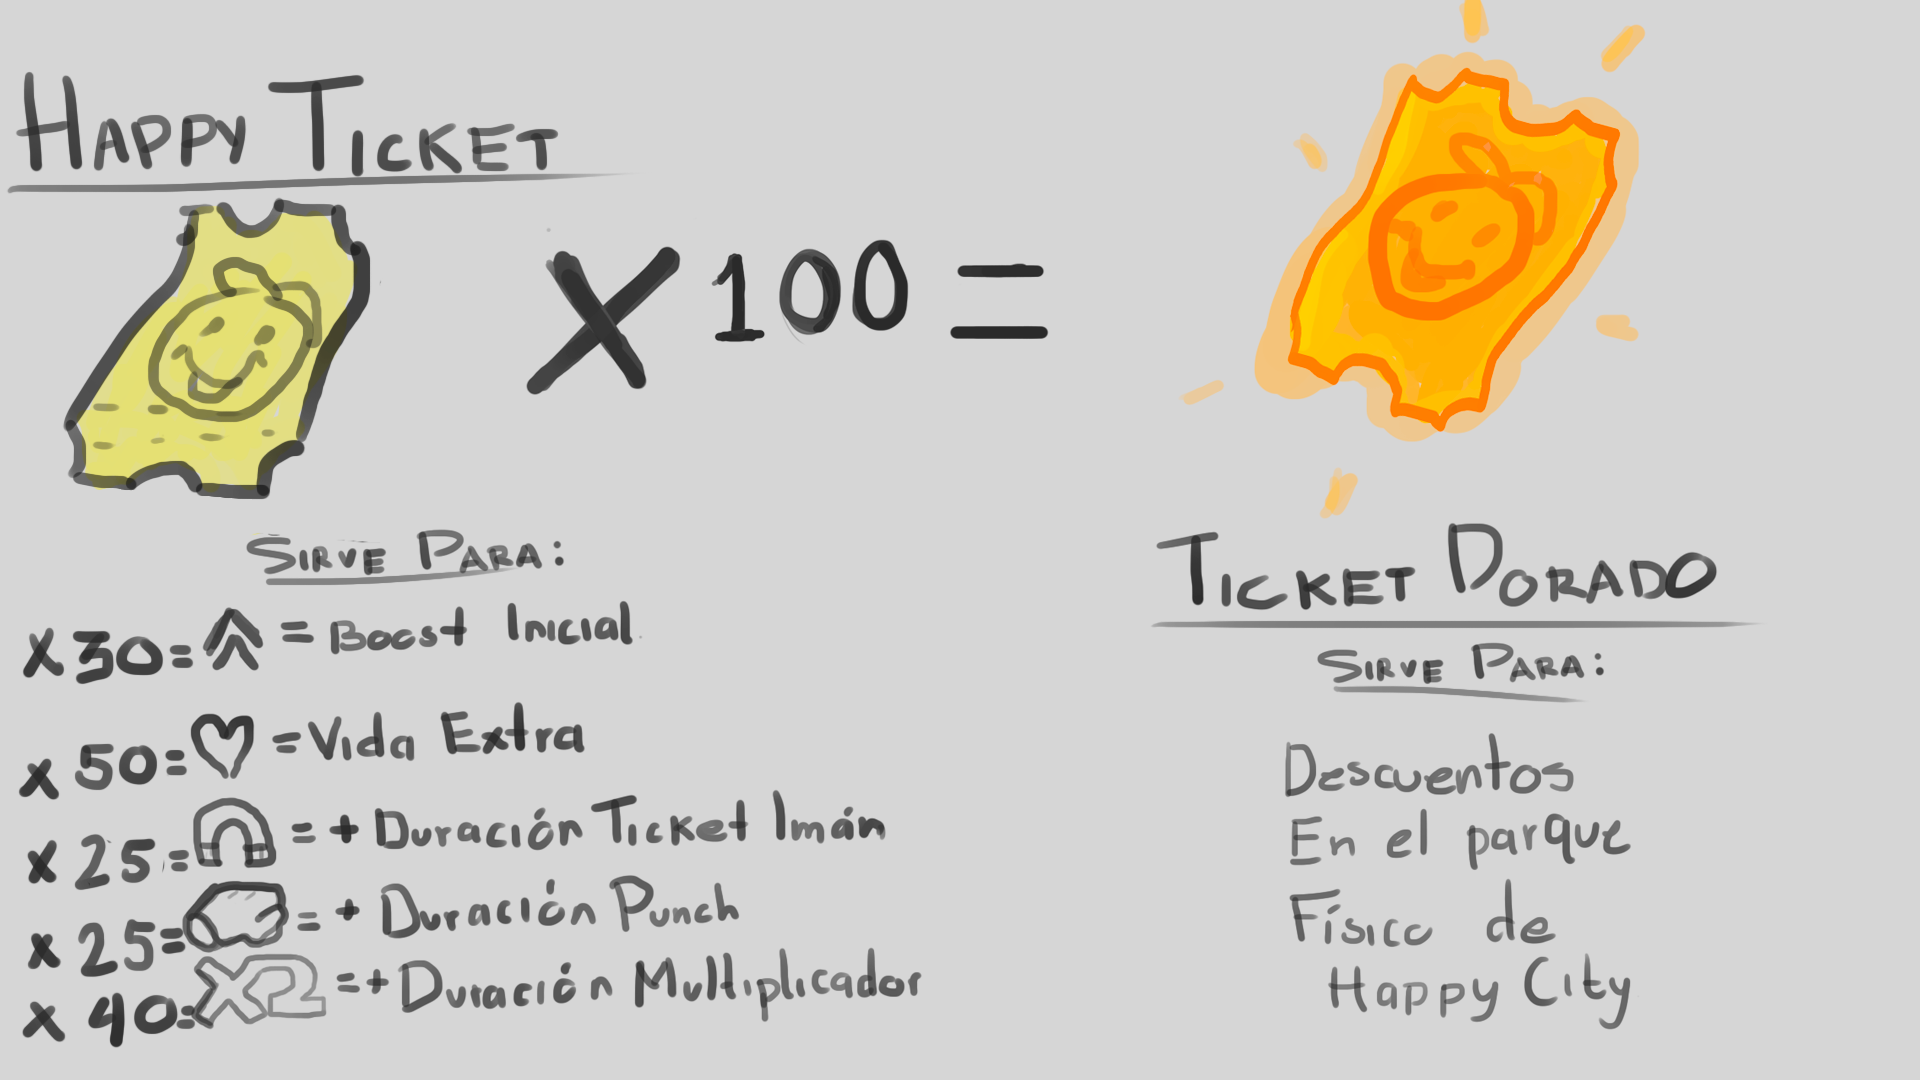 HAPPY TICKET
X 100 =
SIRVE PARA:
X 30 = = Boost Inicial
X 50 = = Vida Extra
X 25 = = + Duración Ticket Imán
X 25 = = + Duración Punch
X 40 = X2 = + Duración Multiplicador
TICKET DORADO
SIRVE PARA:
Descuentos
En el parque
Físico de
Happy City